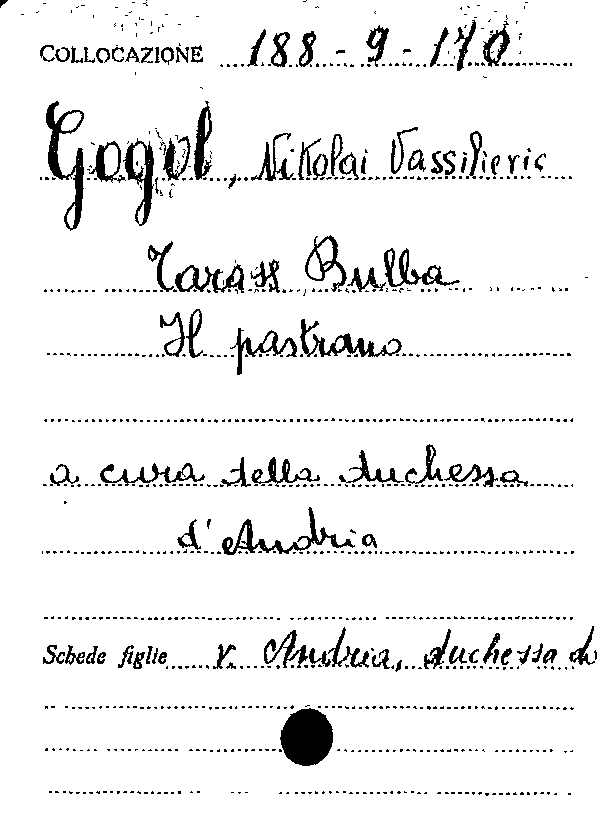 COLLOCAZIONE 188 - 9 - 170
Gogol, Nikolai Vassilievic
Tarass Bulba
Il pastrano
a cura della duchessa
d'Andria
Schede figlie v. Andria, duchessa di